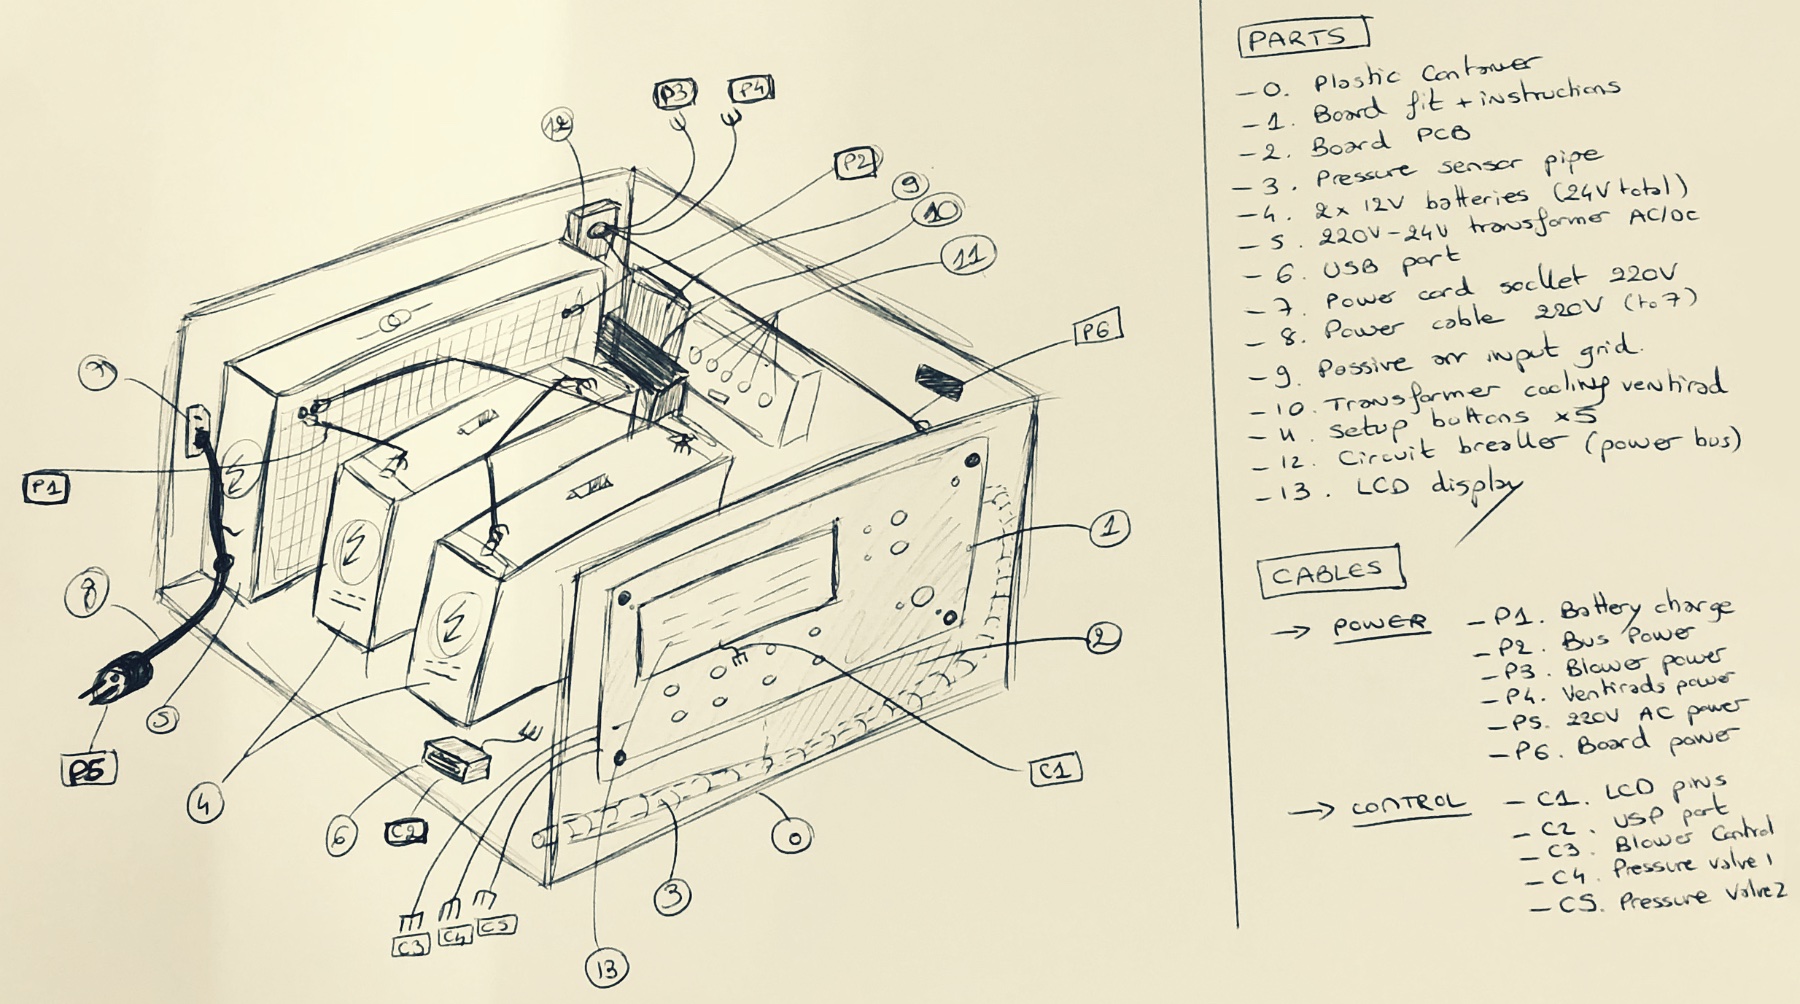 P3
P4
12
P2
9
10
11
P6
7
P1
1
8
2
5
P5
C1
4
6
C2
0
3
C3
C4
C5
13
PARTS
- 0. Plastic Container
- 1. Board fit + instructions
- 2. Board PCB
- 3. Pressure sensor pipe
- 4. 2x 12V batteries (24V total)
- 5. 220V-24V transformer AC/DC
- 6. USB port
- 7. Power cord socket 220V
- 8. Power cable 220V (to 7)
- 9. Passive air input grid.
- 10. Transformer cooling ventirad
- 11. Setup buttons x5
- 12. Circuit breaker (power bus)
- 13. LCD display
CABLES
→ POWER
- P1. Battery charge
- P2. Bus Power
- P3. Blower power
- P4. Ventirads power
- P5. 220V AC power
- P6. Board power
→ CONTROL
- C1. LCD pins
- C2. USP port
- C3. Blower Control
- C4. Pressure valve 1
- C5. Pressure Valve 2